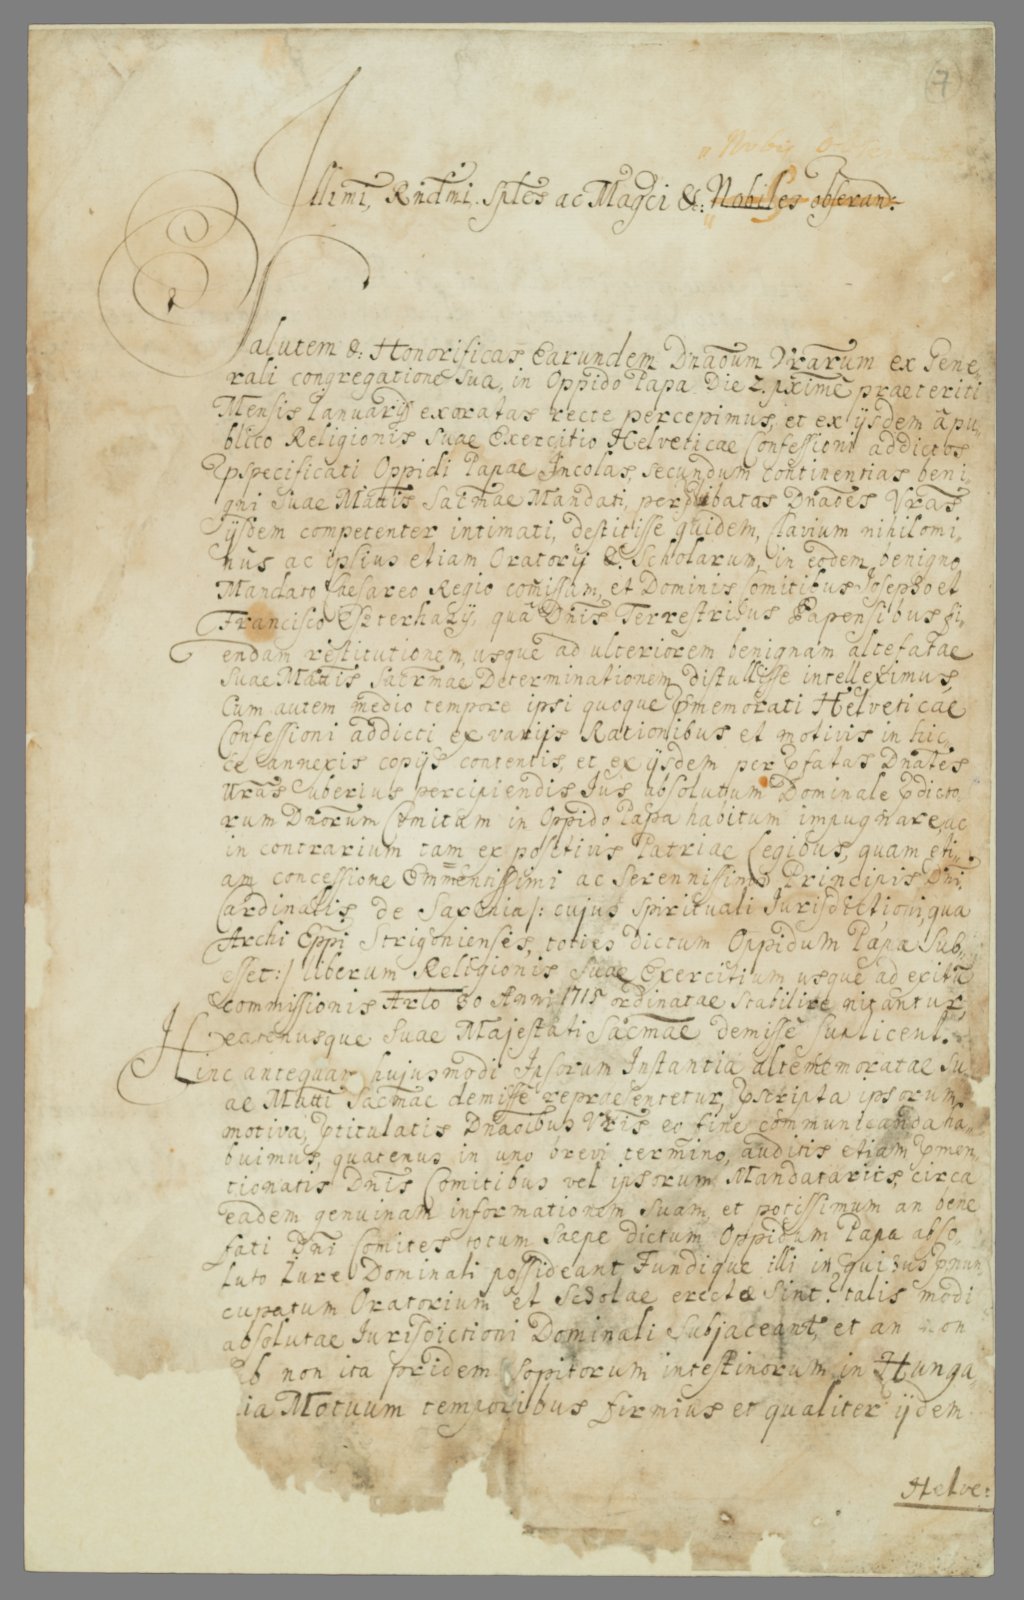 7
Illmi, Rndmi. Sples ac Magci &: Nobiles obseran:
Salutem &: Honorificas Earundem Dnaõum Vrarum ex Gene,
rali congregatione sua, in Oppido Papa Die 2. pxime praeteriti
Mensis Ianuarij exoratas recte percepimus, et ex ijsdem â pu,
blico Religionis suae Exercitio Helveticae Confessioni addictos
Pspecificati Oppidi Papae Incolas, secundum continentias beni,
gni suae Mattis Sacrmae Mandati, per Dnaões Vras
ijsdem competenter intimati, destitisse quidem, clavium nihilomi,
nus ac ipsius etiam Oratorij &: Scholarum, in eodem benigno
Mandato Caesareo Regio comissam, et Dominis Comitibus Josepho et
Francisco Eszterhazij, quâ Dnis Terrestribus Papensibus fi,
endam restitutionem, usque ad ulteriorem benignam altefatae
Suae Mattis Sacrmae Determinationem distullisse intelleximus,
Cum autem medio tempore ipsi quoque Pmemorati Helveticae
Confessioni addicti ex varijs Rationibus et motivis in hic
ce annexis copijs contentis, et ex ijsdem per Pfatas Dnaões
Vras uberius percipiendis Jus absolutum Dominale Pdicto,
rum Dnorum Comitum in Oppido Papa habitum impugnare, ac
in contrarium tam ex positivis Patriae Legibus, quam eti,
am concessione Emmentissimi ac Serennissimi Principis Dni
Cardinalis, de Saxenia /: cujus spirituali Jurisdictioni, qua
Archi Eppi Strigonienses, toties dictum Oppidum Papa Sub,
esset :/ liberum Religionis suae Exercitium usque ad exitũ
commissionis Artlo 30 Anni 1715 ordinatae stabilire nitantur,
eatenusque Suae Majestati Sacmae demisse suplicent.
Hinc antequam hujusmodi Ipsorum Instantia altememoratae Su,
ae Matti Sacmae demisse repraesentetur, Pscripta ipsorum
motiva, Ptitulatis Dnaõibus Vris eo fine communicanda ha,
buimus, quatenus in uno brevi termino, auditis etiam Pmen,
tionatis Dnis Comitibus vel ipsorum Mandatarijs, circa
eadem genuinam informationem suam, et potissimum an bene
fati Dni Comites totum saepe dictum Oppidum Papa abso,
luto Iure Dominali possideant, Fundique illi in quibus Pnun
cupatum Oratorium et Scholae erectae sint? talis modi
absolutae Jurisdictioni Dominali Subjaceant, et an non
b non ita pridem sopitorum intestinorum in Hunga,
ia Motuum temporibus firmius et qualiter ijdem
Helve: